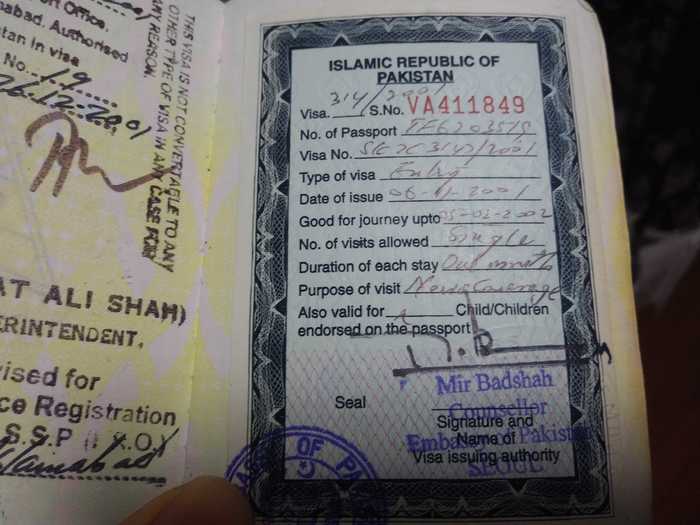 ort Office,
abad. Authorised
stan in visa
No...19
26-12-2001
THIS VISA IS NOT CONVERTABLE TO ANY
OTHER TYPE OF VISA IN ANY CASE FOR
ANY REASON.
AT ALI SHAH)
ERINTENDENT,
vised for
ce Registration
S.S.P (I.X.O)
Islamabad
ISLAMIC REPUBLIC OF
PAKISTAN
Visa. 314/2001 S.No. VA411849
No. of Passport
Visa No.
Type of visa Entry
Date of issue 06-11-2001
Good for journey upto 05-02-2002
No. of visits allowed Single
Duration of each stay One month
Purpose of visit News Coverage
Also valid for Child/Children
endorsed on the passport
Mir Badshah
Counsellor
Embassy of Pakistan
SEOUL
Seal
Signature and
Name of
Visa issuing authority